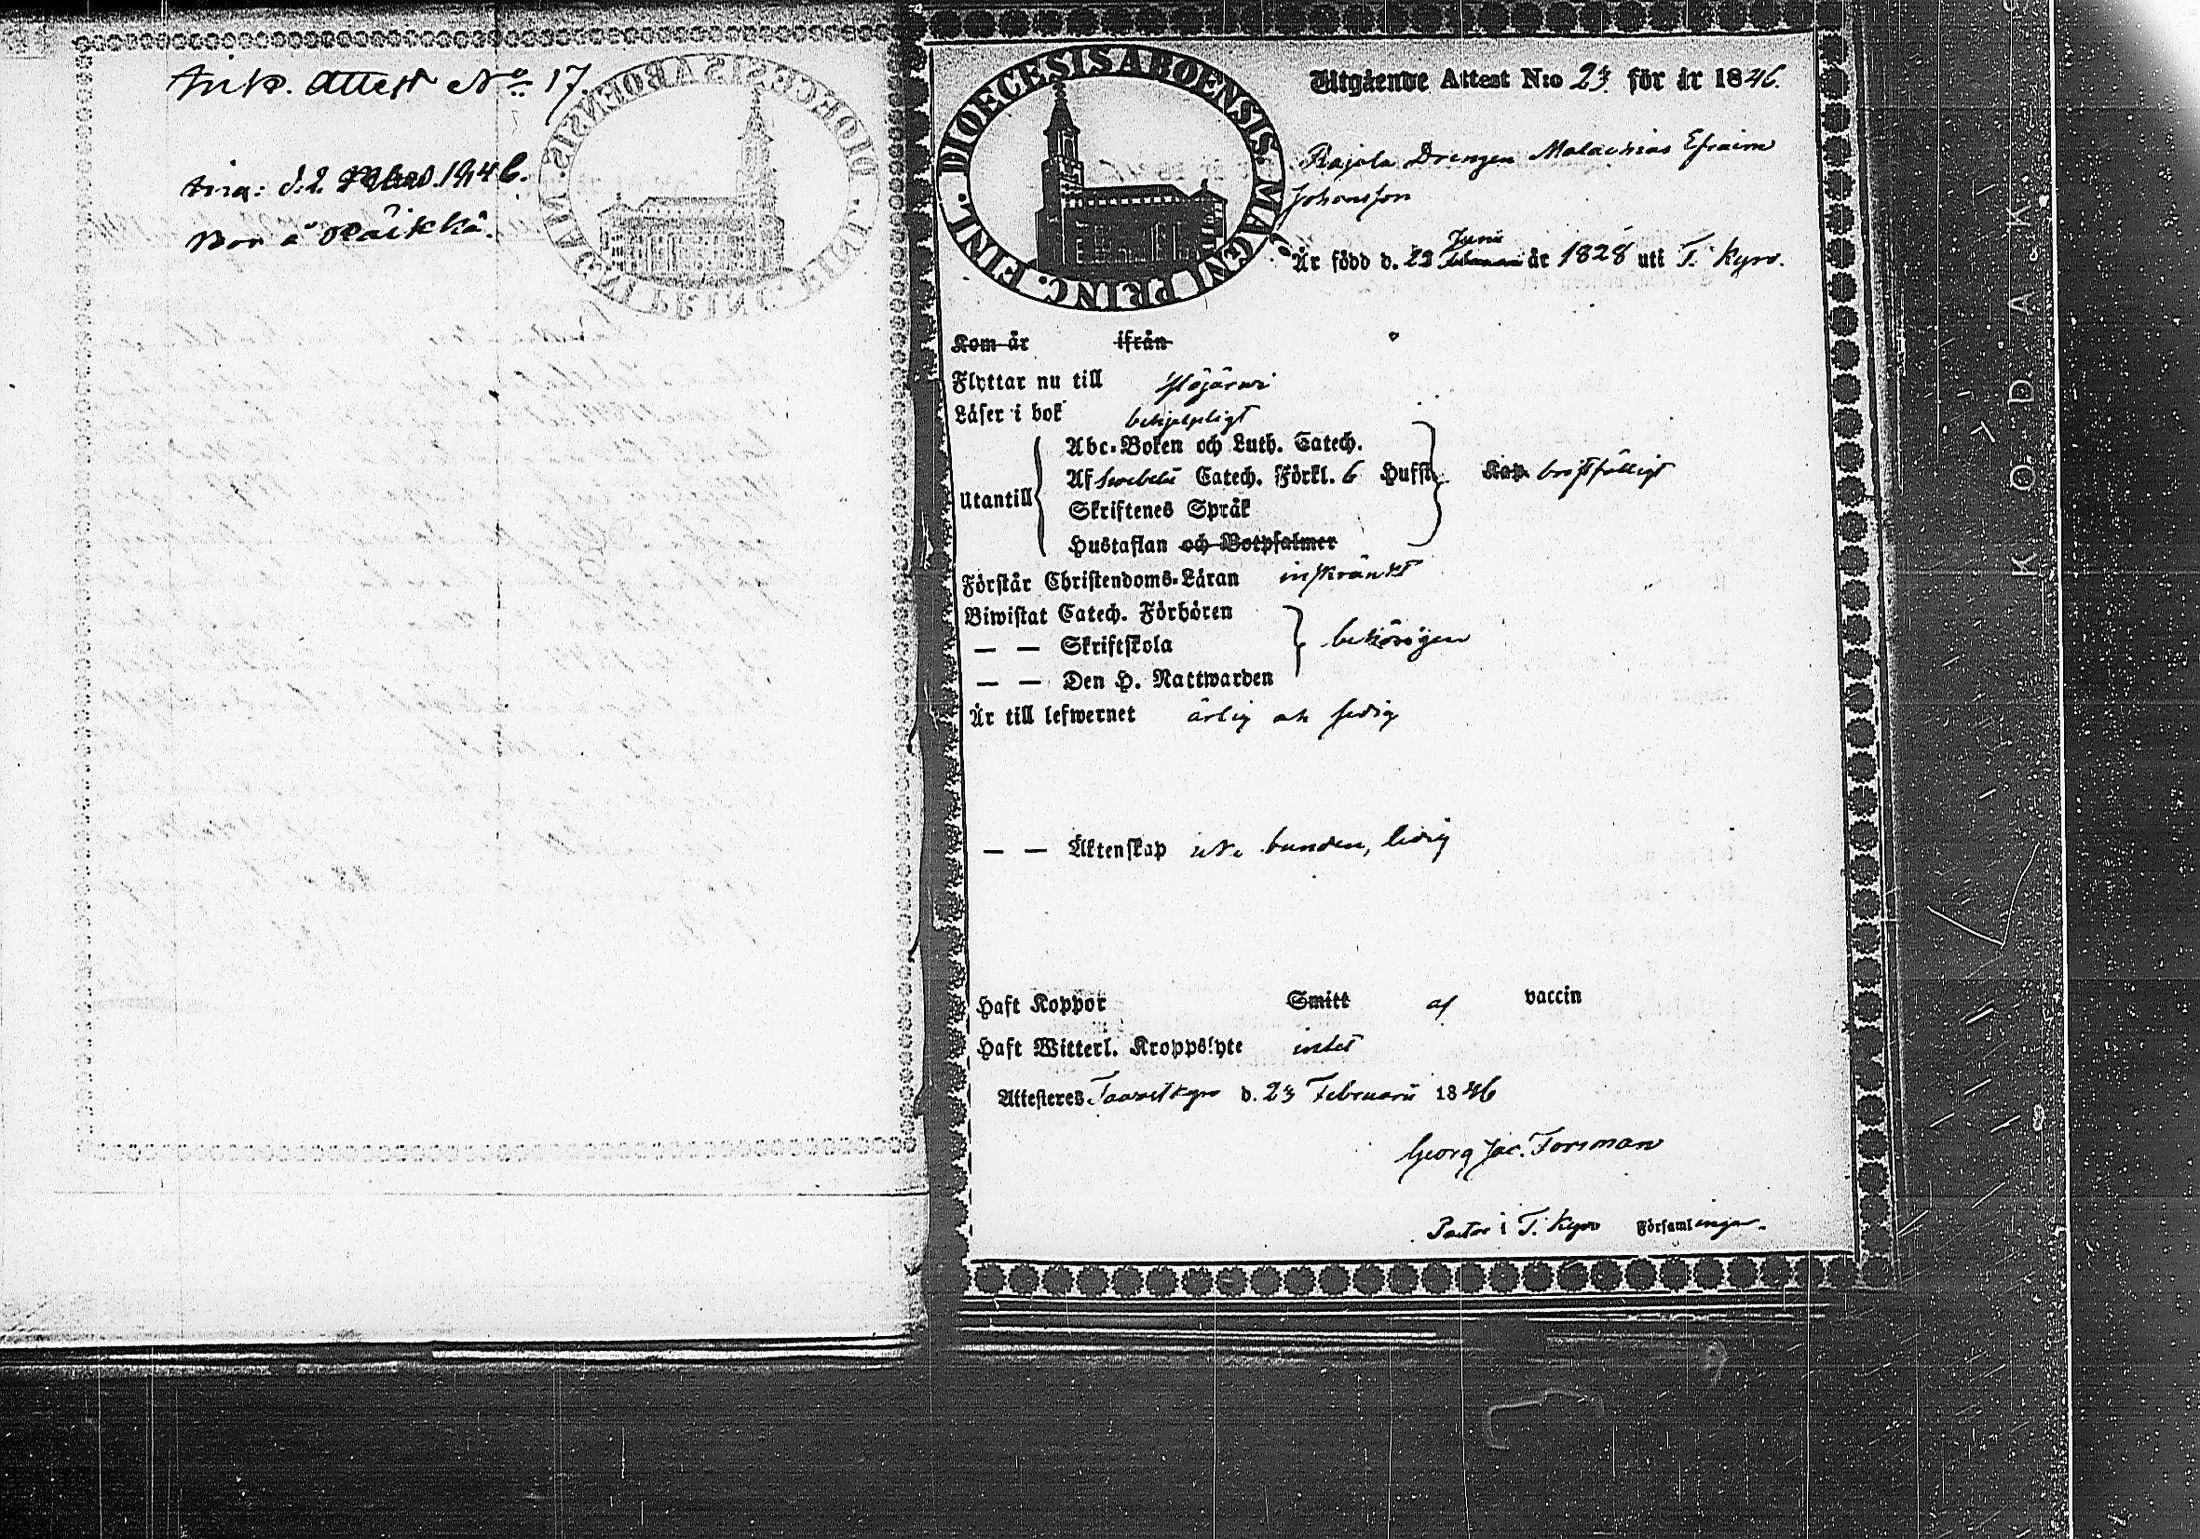 Ank. Attest No 17.
d. 2 Mars 1846.
Bor å Räikkä.
DIOECESIS ABOENSIS. MAGNI PRINC. FINL.
Utgående Attest N:o 23 för år 1846.
Rajala Drengen Malachias Efraim
Johansson
Är född d. 22 Februarii Junii år 1828 uti T. Kyro.
Kom år ifrån
Flyttar nu till Ylöjärvi
Läser i bok behjelpligt
Abc-Boken och Luth. Catech.
Af Svebelii Catech. Förkl. 6 Hufst. Kap. bristfälligt
Utantill
Skriftenes Språk
Hustaflan och Botpsalmer
Förstår Christendoms-Läran inskränkt
Biwistat Catech. Förhören
— — Skriftskola behörigen
— — Den H. Nattwarden
Är till lefwernet ärlig och sedig
— — Äktenskap icke bunden, ledig
Haft Koppor Smitt af vaccin
Haft Witterl. Kroppslyte intet
Attesteres Tavastkyro d. 23 Februarii 1846
Georg Jac. Forsman
Pastor i T. Kyro Församlingar.
KODAK